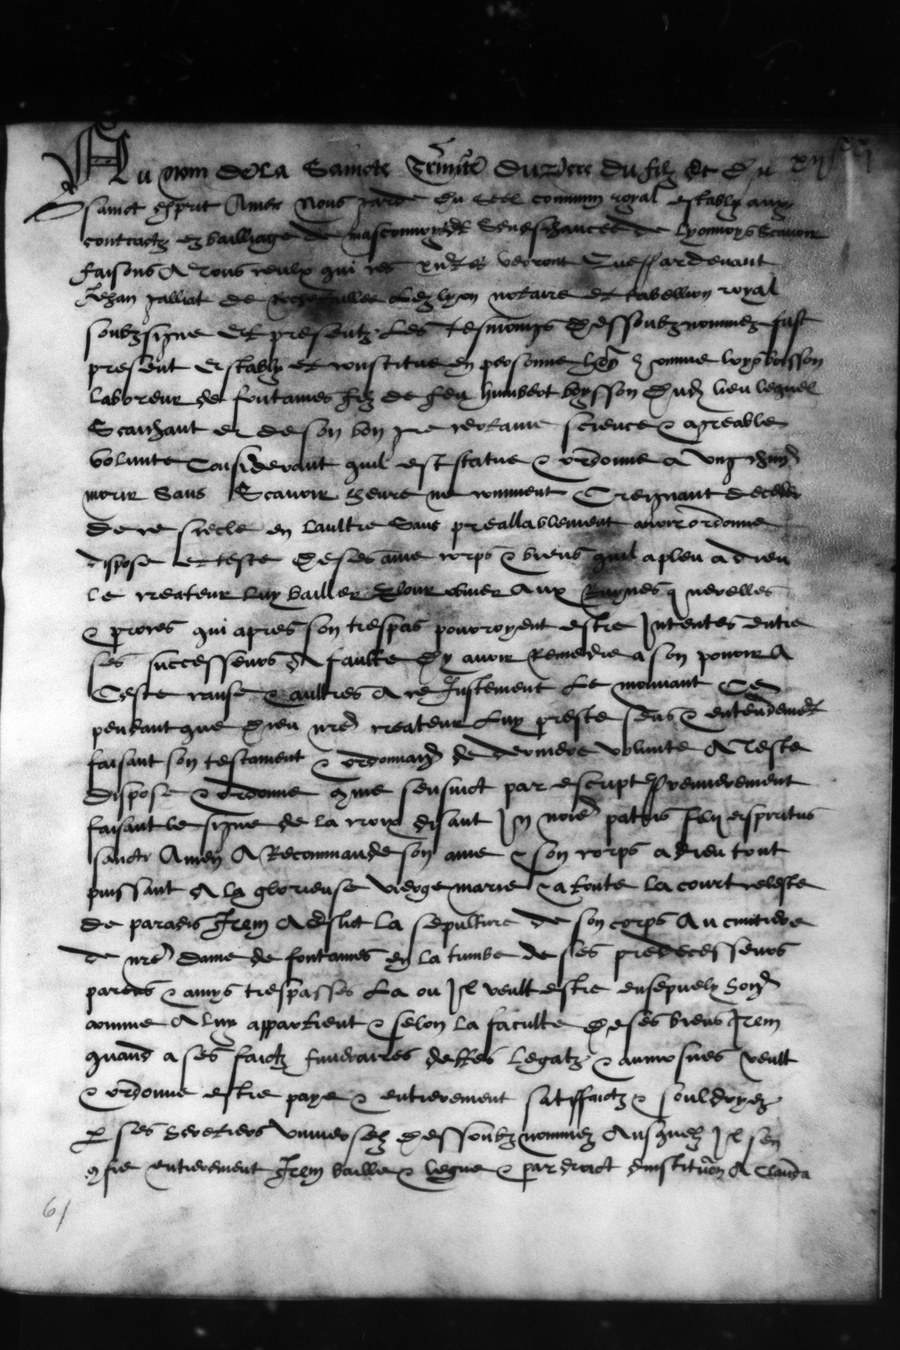 Au nom de la Saincte Trinite du pere du filz et du
sainct esprit Amen Nous garde du seel commun royal estably aux
contractz es bailliage de masconnoys et seneschaucee de lyonnoys Scavoir
faisons A tous ceulx qui ces pntes verront Que pardevant
Jehan palliat de lez lyon notaire et tabellion royal
soubzsigne Et presentz les tesmoings dessoubz nommez fust
present estably et constitue en personne homme loys boisson
laboreur de fontaines filz de feu humbert boysson dud lieu lequel
Scaichant et de son bon gre certaine science & agreable
volunte Considerant quil est statue & ordonne a ung
morir sans Scavoir lheure ne comment Creignant deceder
de ce siecle en laultre sans preallablement avoir ordonne
dispose et teste de ses ame corps & biens quil a pleu a dieu
le createur luy bailler Et pour obvier aux querelles
& proces qui apres son trespas pourroyent estre Intentes entre
ses successeurs A faulte dy avoir Remedie a son povoir A
Ceste cause & aultres A ce Justement le mouvant Ce
pendant que dieu nre createur luy preste sens & entendement
faisant son testament & ordonnance de derniere volunte A teste
dispose & ordonne come sensuict par escript Premierement
faisant le signe de la croix disant In noie patris filij espiritus
sancti Amen A Recommande son ame & son corps a dieu tout
puissant A la glorieuse vierge marie & a toute la court celeste
de paradis Item A esluct la sepulture de son corps Au cimitiere
de nre dame de fontaines en la tumbe de ses predecesseurs
parens & amys trespasses la ou Il veult estre ensepvely
comme A luy appartient & selon la faculte de ses biens Item
quand a ses faictz funeraires debtes legatz & aumosnes veult
& ordonne estre paye & entierement satiffaictz & souldoyez
p ses heretiers universelz dessoubz nommez Ausquelz Il sen
confie entierement Item baille & legue & par droict dinstitution A Clauda
61